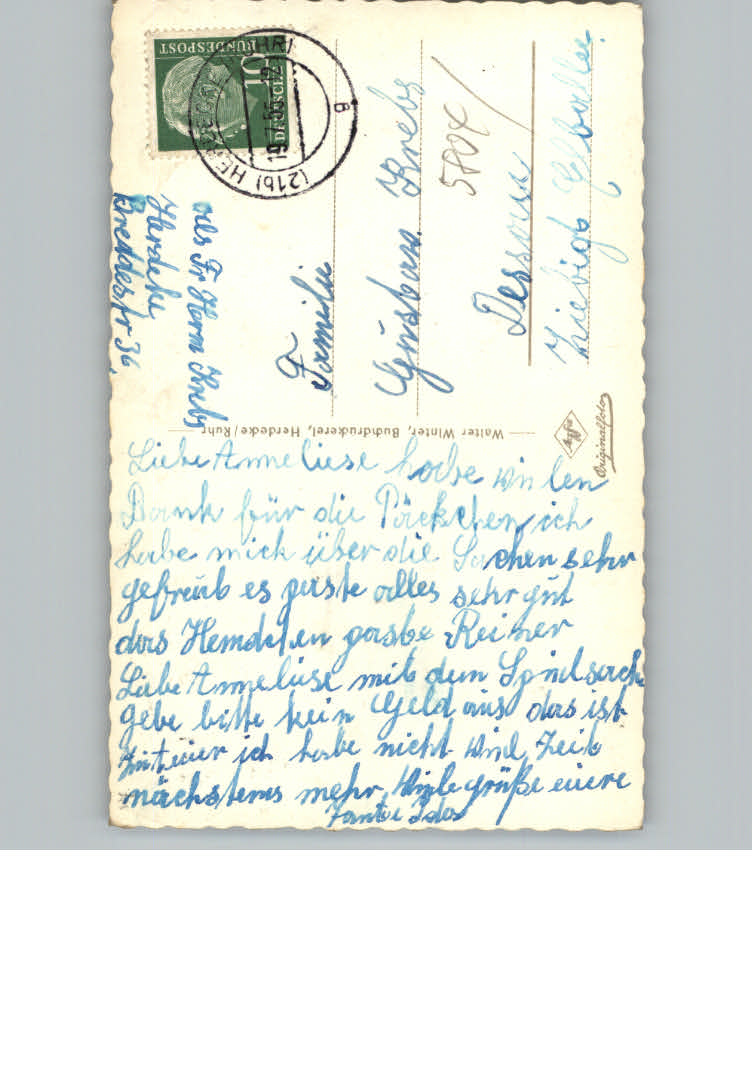 Liebe Anneliese habe vielen
Dank für die Päckchen ich
habe mich über die Sachen sehr
gefreub es paste alles sehr gut
das Hemdchen paste Reiner
Liebe Anneliese mit dem
gebe bitte kein Geld aus das ist
ich habe nicht Zeit
nächstens mehr grüße euere
Tante Ida
Familie
Gustav Krebs
5804
Dessau
Ziebigk
abs Fr Herm Krebs
Herdeke
36
Walter Winter, Buchdruckerei, Herdecke/Ruhr
Agfa
Originalfoto
DEUTSCHE
BUNDESPOST
10
(21b) HERDECKE (RUHR)
19.7.55
a